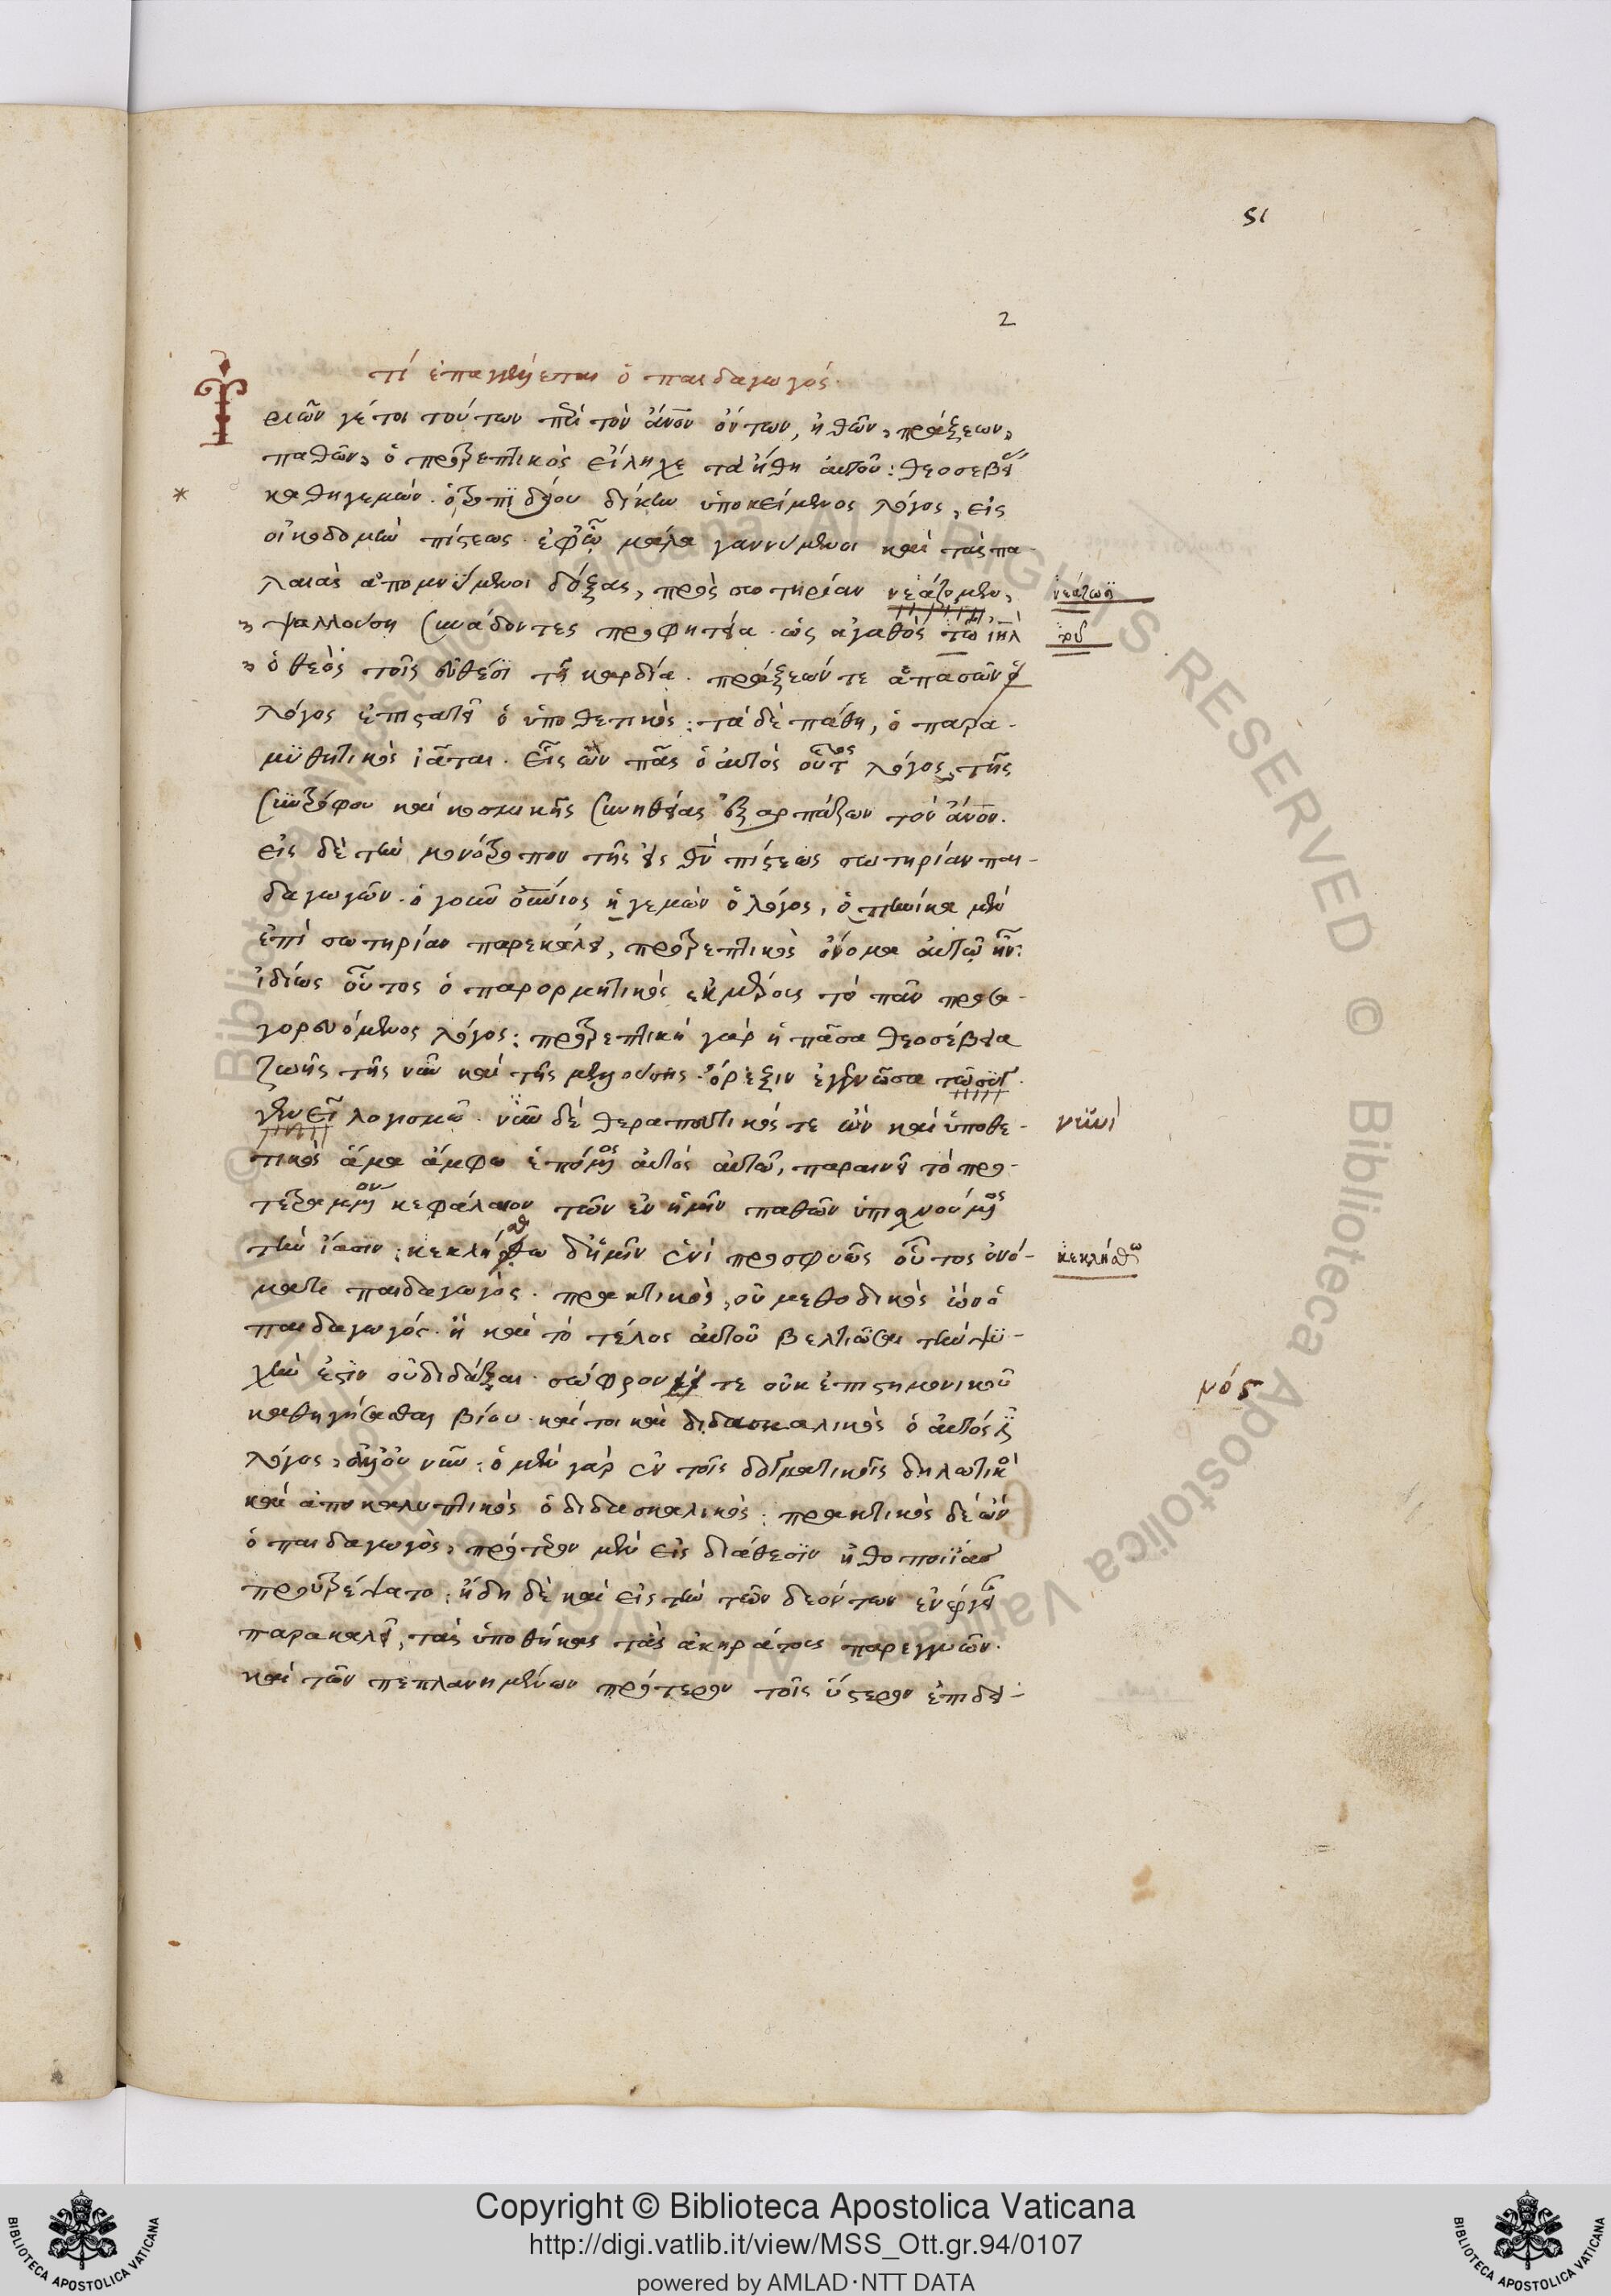 51
2
τί ἐπαγγέλλεται ὁ παιδαγωγός.
Τριῶν γέ τοι τούτων περὶ τὸν ἄνον ὄντων, ἠθῶν, πράξεων,
παθῶν, ὁ προτρεπτικὸς εἴληχε τὰ ἤθη αὐτοῦ: θεοσεβείας
καθηγεμών. ὁ τρόπιδος δίκην ὑποκείμενος λόγος, εἰς
οἰκοδομὴν πίστεως. ἐφ' ᾧ μάλα γαννύμενοι καὶ τὰς πα-
λαιὰς ἀπομνύμενοι δόξας, πρὸς σωτηρίαν νεάζομεν,
ψάλλουσῃ συνάδοντες προφητείᾳ. ὡς ἀγαθὸς τῷ ἰηλ
ὁ θεὸς τοῖς εὐθέσι τῇ καρδίᾳ. πράξεών τε ἁπασῶν ὁ
λόγος ἐπιστατεῖ ὁ ὑποθετικός: τὰ δὲ πάθη, ὁ παρα-
μυθητικὸς ἰᾶται. εἷς ὢν πᾶς ὁ αὐτὸς οὗτος λόγος, τῆς
συντρόφου καὶ κοσμικῆς συνηθείας ἐξαρπάζων τὸν ἄνον.
εἰς δὲ τὴν μονότροπον τῆς εἰς θν πίστεως σωτηρίαν παι-
δαγωγῶν. ὁ γοῦν οὐνιος ἡγεμὼν ὁ λόγος, ὁπηνίκα μὲν
ἐπὶ σωτηρίαν παρεκάλει, προτρεπτικὸς ὄνομα αὐτῷ ἦν:
ἰδίως οὗτος ὁ παρορμητικὸς ἐκ μέρους τὸ πᾶν προσα-
γορευόμενος λόγος: προτρεπτικὴ γὰρ ἡ πᾶσα θεοσέβεια
ζωῆς τῆς νῦν καὶ τῆς μελλούσης ὄρεξιν ἐγγεννῶσα τῷ συγ-
γενεῖ λογισμῷ. νῦν δὲ θεραπευτικός τε ὢν καὶ ὑποθε-
τικὸς ἅμα ἄμφω ἑπόμενος αὐτὸς αὑτῷ, παραινεῖ τὸ προ-
τετραμμένον κεφάλαιον τῶν ἐν ἡμῖν παθῶν ὑπισχνούμενος
τὴν ἴασιν: κεκλήσθω δ' ἡμῖν ἑνὶ προσφυῶς οὗτος ὀνό-
ματι παιδαγωγός. πρακτικὸς, οὐ μεθοδικὸς ὢν ὁ
παιδαγωγός. ᾗ καὶ τὸ τέλος αὐτοῦ βελτιῶσαι τὴν ψυ-
χήν ἐστιν οὐ διδάξαι. σώφρον τε οὐκ ἐπιστημονικοῦ
καθηγήσασθαι βίου. καίτοι καὶ διδασκαλικὸς ὁ αὐτός ἐστι
λόγος, ἀλλ' οὐ νῦν: ὁ μὲν γὰρ ἐν τοῖς δογματικοῖς δηλωτικὸς
καὶ ἀποκαλυπτικὸς ὁ διδασκαλικός: πρακτικὸς δὲ ὢν
ὁ παιδαγωγὸς, πρότερον μὲν εἰς διάθεσιν ἠθοποιίας
προὐτρέψατο: ἤδη δὲ καὶ εἰς τὴν τῶν δεόντων ἐνέργειαν
παρακαλεῖ, τὰς ὑποθήκας τὰς ἀκηράτους παρεγγυῶν.
καὶ τῶν πεπλανημένων πρότερον τοῖς ὕστερον ἐπιδει-
νυνὶ
κεκλήσθω